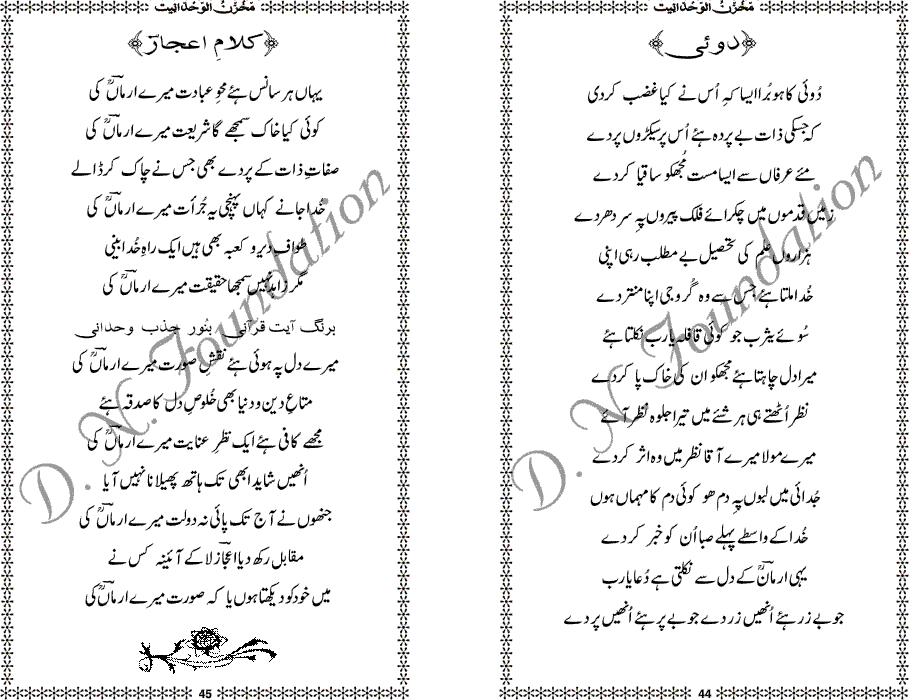 مَخْزَنُ الوَحْدَانِیت
﴿دوئی﴾
دُوئی کا ہو بُرا ایسا کہِ اُس نے کیا غضب کر دی
کہ جسکی ذات بے پردہ ہئے اُس پر سیکڑوں پردے
مئے عرفاں سے ایسا مست مُجھکو ساقیا کردے
زمیں قدموں میں چکرائے فلک پیروں پہِ سر دھردے
ہزاروں علم کی تحصیل بے مطلب رہی اپنی
خُدا ملتا ہئے جس سے وہ گُرو جی اپنا منتر دے
سُوئے یثرب جو کوئی قافلہ یارب نکلتا ہئے
میرا دل چاہتا ہئے مجھکو ان کی خاک پا کردے
نظر اُٹھتے ہی ہر شئے میں تیرا جلوہ نظر آئے
میرے مولا میرے آقا نظر میں وہ اثر کردے
جُدائی میں لبوں پہِ دم ھو کوئی دم کا مہماں ہوں
خُدا کے واسطے پہلے صبا اُن کو خبر کردے
یہی ارماںؔ کے دل سے نکلتی ہے دُعا یارب
جو بے زر ہئے اُنھیں زر دے جو بے پر ہئے اُنھیں پر دے
44
مَخْزَنُ الوَحْدَانِیت
﴿کلامِ اعجازؔ﴾
یہاں ہر سانس ہئے محوِ عبادت میرے ارماںؔ کی
کوئی کیا خاک سمجھے گا شریعت میرے ارماںؔ کی
صفاتِ ذات کے پردے بھی جس نے چاک کر ڈالے
خُدا جانے کہاں پہنچی یہ جُرأت میرے ارماںؔ کی
طوافِ دیر و کعبہ بھی ہیں ایک راہِ خُدا بینی
مگر زاہد نہیں سمجھا حقیقت میرے ارماںؔ کی
برنگ آیت قرآنی بنُور جذب وحدانی
میرے دل پہ ہوئی ہئے نقش صورت میرے ارماںؔ کی
متاعِ دین و دنیا بھی خُلوصِ دل کا صدقہ ہئے
مجھے کافی ہئے ایک نظرِ عنایت میرے ارماںؔ کی
اُنھیں شاید ابھی تک ہاتھ پھیلانا نہیں آیا
جنھوں نے آج تک پائی نہ دولت میرے ارماںؔ کی
مقابل رکھ دیا اعجازؔ لا کے آئینہ کس نے
میں خود کو دیکھتا ہوں یا کہ صورت میرے ارماںؔ کی
45
D. N. Foundation
D. N. Foundation